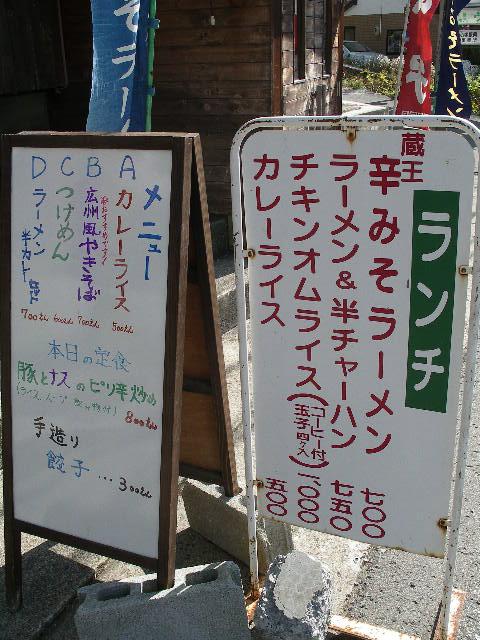 メニュー
A カレーライス 500えん
B 広州風やきそば 700えん
C つけめん 600えん
D ラーメン 半カレーセット 700えん
本日の定食
豚とナスのピリ辛炒め
800えん
手造り
餃子…300えん
ランチ
蔵王
辛みそラーメン 七〇〇
ラーメン&半チャーハン 七五〇
チキンオムライス(コーヒー付 玉子四ケ入) 一、〇〇〇
カレーライス 五〇〇
そラー